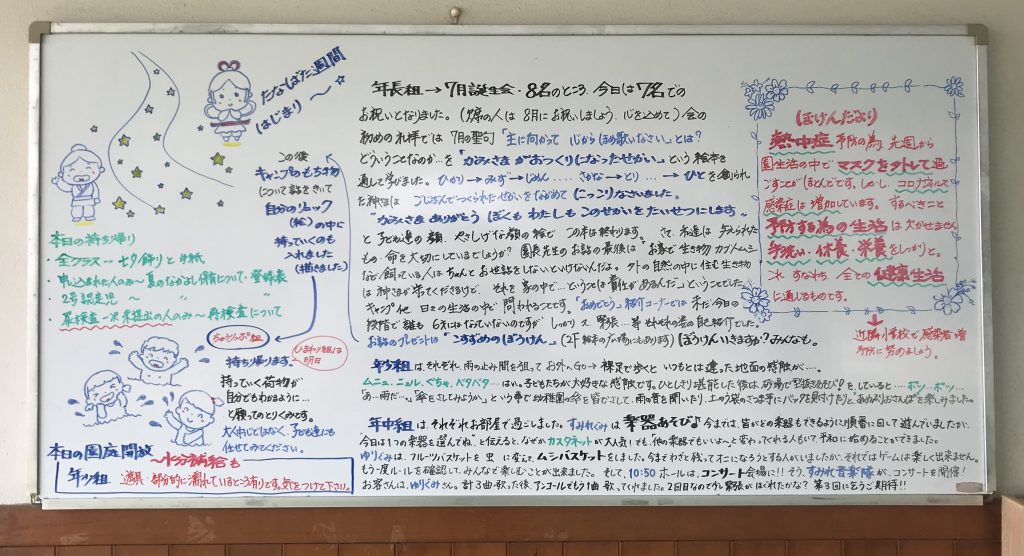 たなばた週間
はじまり～☆
この後
キャンプのもちもの
について話をきいて
自分のリュック
(絵)の中に
持っていくのも
入れました
(描きました)
本日の持ち帰り
・全クラス～七夕飾りと手紙
・申込された人のみ～夏のなかよし保育について・登録表
・2号認定児～〃
・尿検査一次未提出の人のみ～再検査について
ちゅうりっぷ組
ひまわり組は
明日
持ち帰ります。
持っていく荷物が
自分でもわかるように…
と願ってのとりくみです。
大人中心ではなく、子ども達にも
任せてみてください。
本日の園庭開放
～十分補給も
年少組 遊具・部分的に濡れているところ有りです。気をつけて下さい。
年長組→7月誕生会・8名のところ、今日は7名での
お祝いとなりました。(欠席の人は8月にお祝いしましょう 心を込めて)会の
初めの礼拝では 7月の聖句「主に向かって 心からほめ歌いなさい」とは?
どういうことなのか…を「かみさまがおつくりになったせかい」という絵本を
通して学びました。ひかり→みず→じめん….さかな→とり…→ひとを創られ
た神さまは ごじぶんでつくられたせかいをながめて にっこりなさいました。
"かみさまありがとう ぼくも わたしも このせかいをたいせつにします"
と子ども達の顔、やさしげな顔の絵で この本は終わります。さて、私達は 与えられた
もの・命を大切にしているでしょうか?園長先生のお話の最後は お家で生き物 カブトムシ
など飼っている人はちゃんとお世話をしないといけないんだよ。外の自然の中に住む生き物
は神さまが育てくださるけど、それを家の中で…というのは責任があるんだ」ということでした。
キャンプ他 日々の生活の中で 問われることです。「おめでとう」紹介コーナーでは まだ今日の
段階で誰も 6才にはなっていないのですが しっかり～緊張…等 それぞれの番の自己紹介でした。
お話のプレゼントは「こすずめのぼうけん」(2F 絵本のひろばにもあります)ぼうけんいきますか?みんなも。
年少組は、それぞれ雨の止み間を狙って お外へGO→裸足で歩くといつもとは違った地面の感触が…。
ムニュ、ニョル、ぐちゃ、ベタベタ….はい。子どもたちが大好きな感触です。ひとしきり堪能した後は、砂場で型抜きあそびをしていると….ポツ…ポツ…
あ…雨だ…。「傘をさしてみようか」という事で幼稚園の傘を皆でさして、雨の音を聞いたり、
年中組は、それぞれお部屋で過ごしました。すみれぐみは 楽器あそび♪今までは、皆がどの楽器もできるように順番に回して遊んでいましたが、
今日は1つの楽器を選んでね」と伝えると、なぜか カスタネットが大人気!でも、「他の楽器でもいいよ～」と変わってくれる人もいて平和に始めることができました。
ゆりぐみは、フルーツバスケットを 虫 に変えて、ムシバスケットをしました。今までわざと残ってオニになろうとする人がいましたが、それではゲームは楽しく出来ません。
もう一度ルールを確認して、みんなで楽しむことが出来ました。そして、10:50 ホールは、コンサート会場に!!そう、すみれ音楽隊が、コンサートを開催!
お客さんは、ゆりぐみさん。計3曲歌った後、アンコールでもう1曲歌ってくれました。2回目なので少し緊張がほぐれたかな?第3回にもうご期待!!
(ほけんだより)
熱中症 予防の為、先週から
園生活の中でマスクを外して過
ごすことがほとんどです。しかし、コロナウイルス
感染症は増加しています。するべきこと
予防する為の生活は欠かせません。
手洗い・休養・栄養をしっかりと。
これ すなわち、全ての健康生活
に通じるものです。
近隣小学校で感染者増
予防に努めましょう。